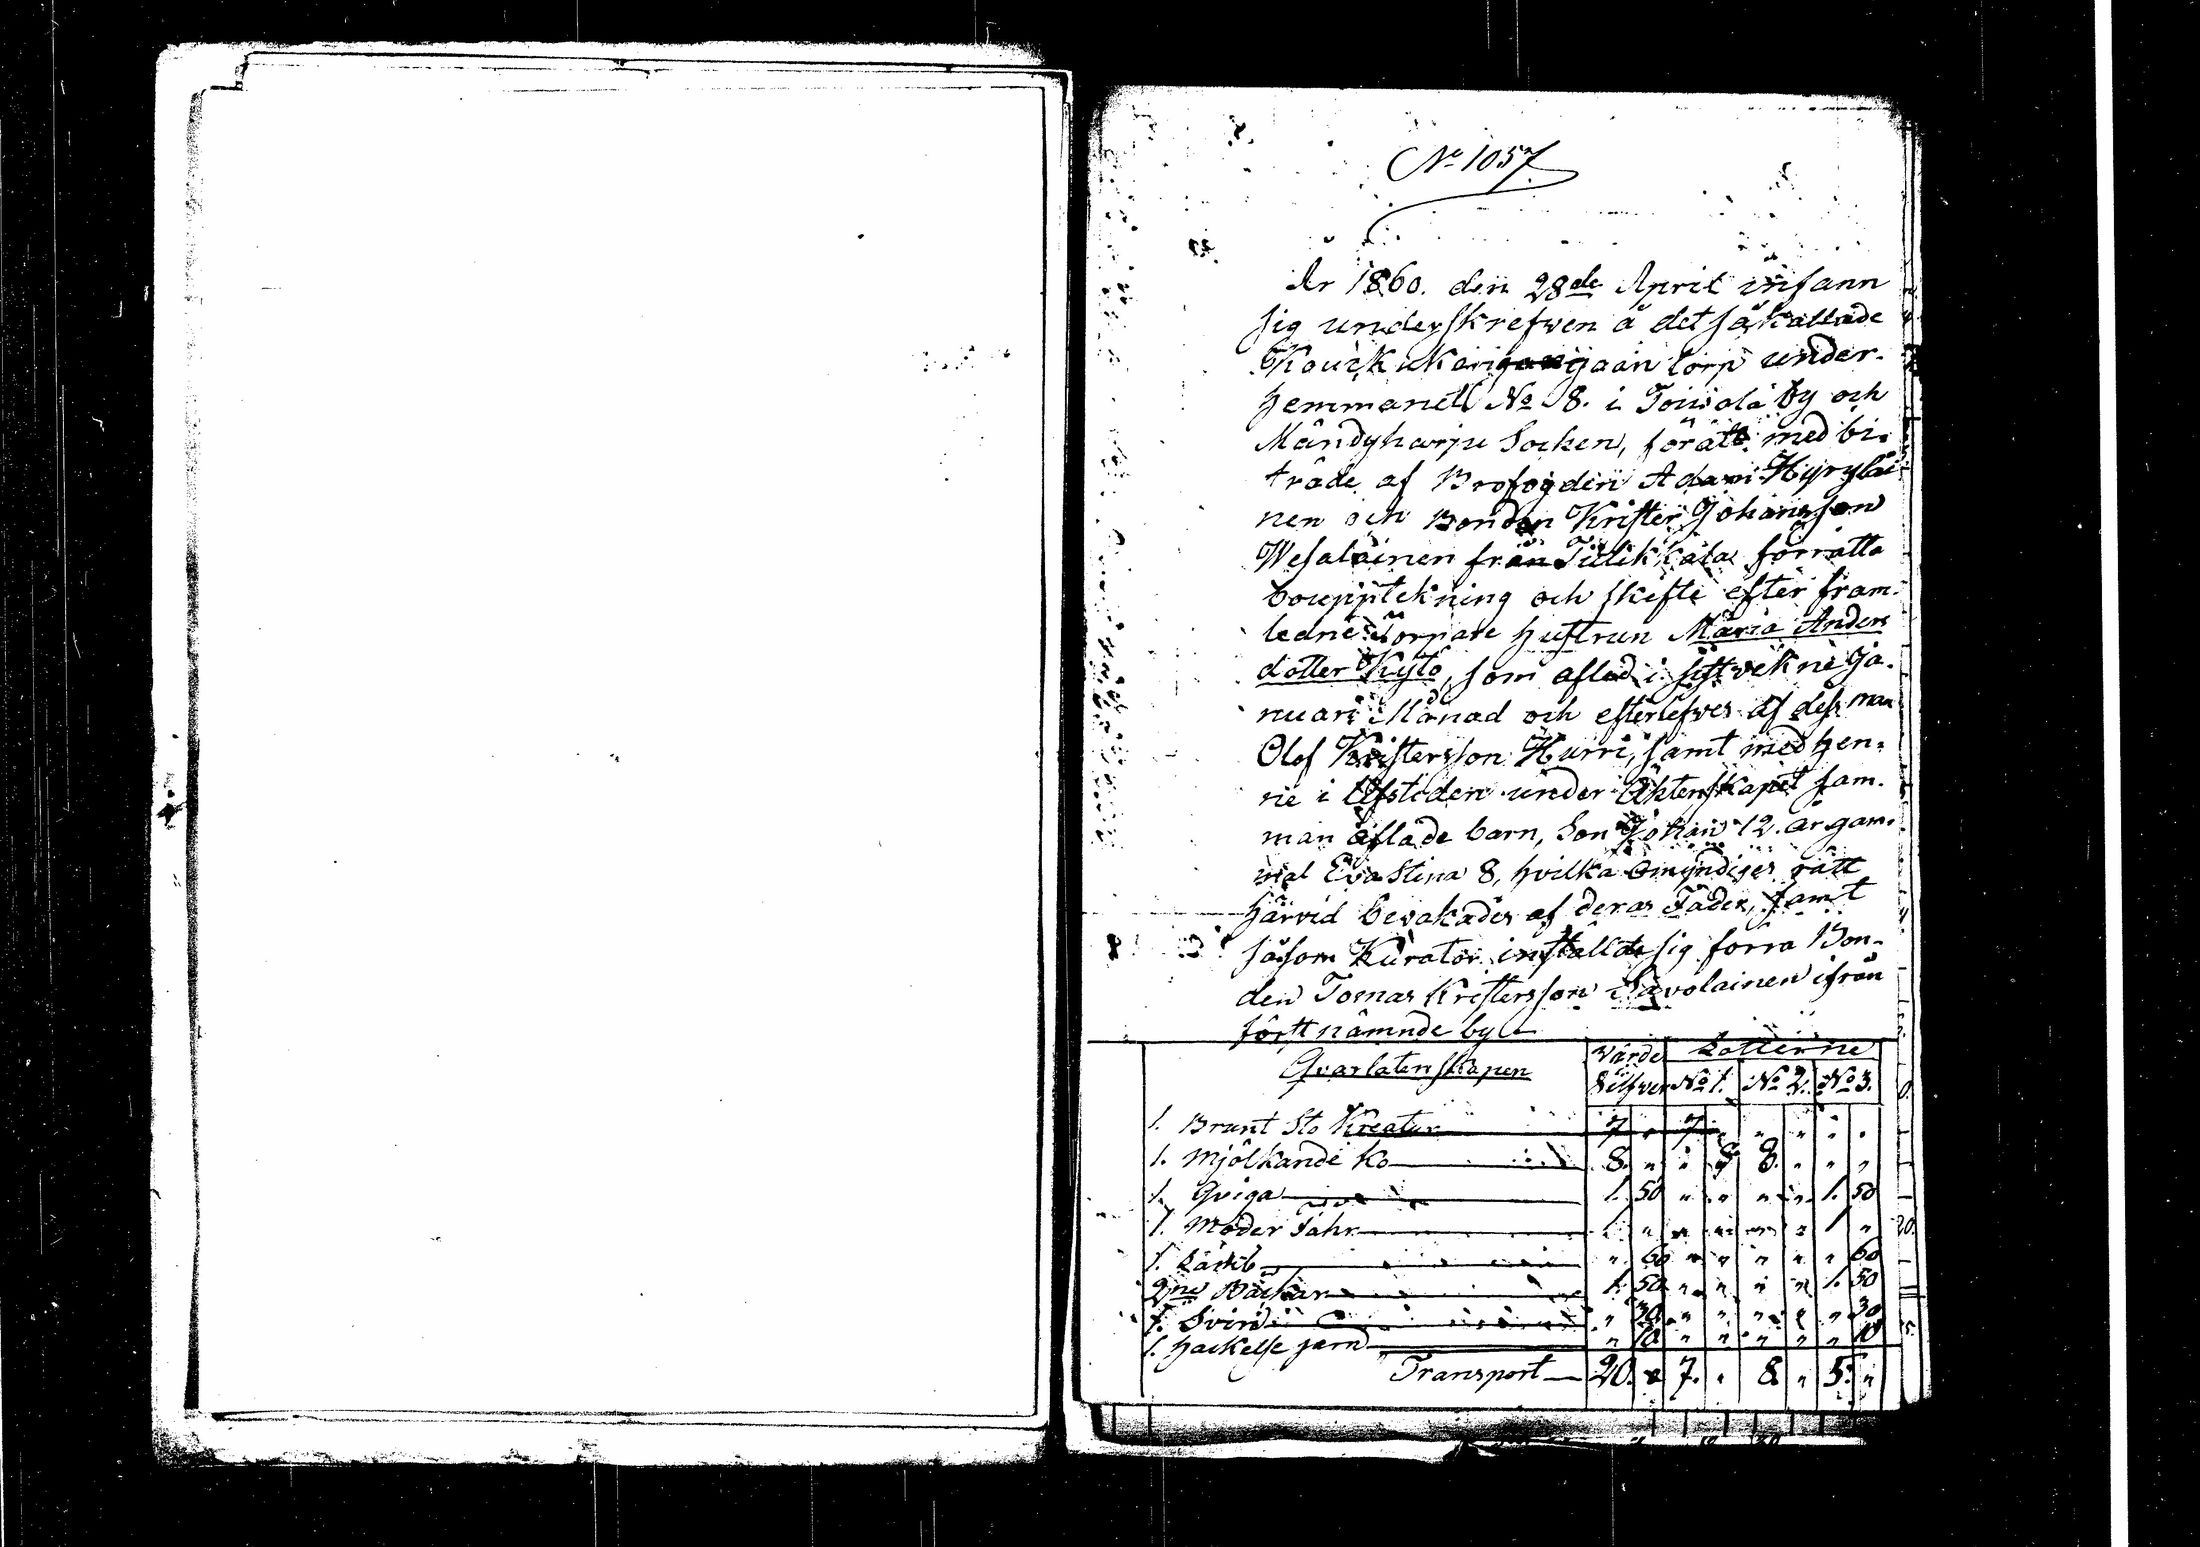 No 1057.
År 1860. den 28de April infann
sig underskrefwen å det såkallade
torp under
hemmanet No 8. i Toiwola by och
Mändyharju Socken, föratt med bi-
träde af Brofogden Adam Hyryläi
nen och Bonden Krister Johansson
Wesalainen från förrätta
boupptekning och skifte efter fram-
ledne Torpare hustrun Maria Anders
dotter Kylö, som afled i sistvekne Ja-
nuari Månad och efterlefves af dess man
Olof Kristersson Hurri, samt med hen-
ne i lifstiden under Äktenskapet sam-
man aflade barn, Son Johan 12. år gam-
mal Eva Stina 8, hvilka omyndiges rätt
härvid bevakades af deras Fader, samt
såsom Kurator installde sig förra Bon-
den Tomas Kristersson Savolainen ifrån
förstnämnde by
Qvarlatenskapen Värde Lotterne
Silfver No 1. No 2. No 3.
1. Brunt Sto Kreatur 7 " 7 " " " " "
1. Mjölkande Ko 8. " " 8. " " "
1. Qviga 1. 50 " " " " 1. 50
1. Moder Fåhr 1 " " " " " 1 "
1. Lamb " 60 " " " " " 60
2ne Bäckar 1. 50 " " " " 1. 50
1. Svin " 30 " " " " " 30
1. Hackelse jern " 10 " " " " " 10
Transport 20. " 7. " 8. " 5. "